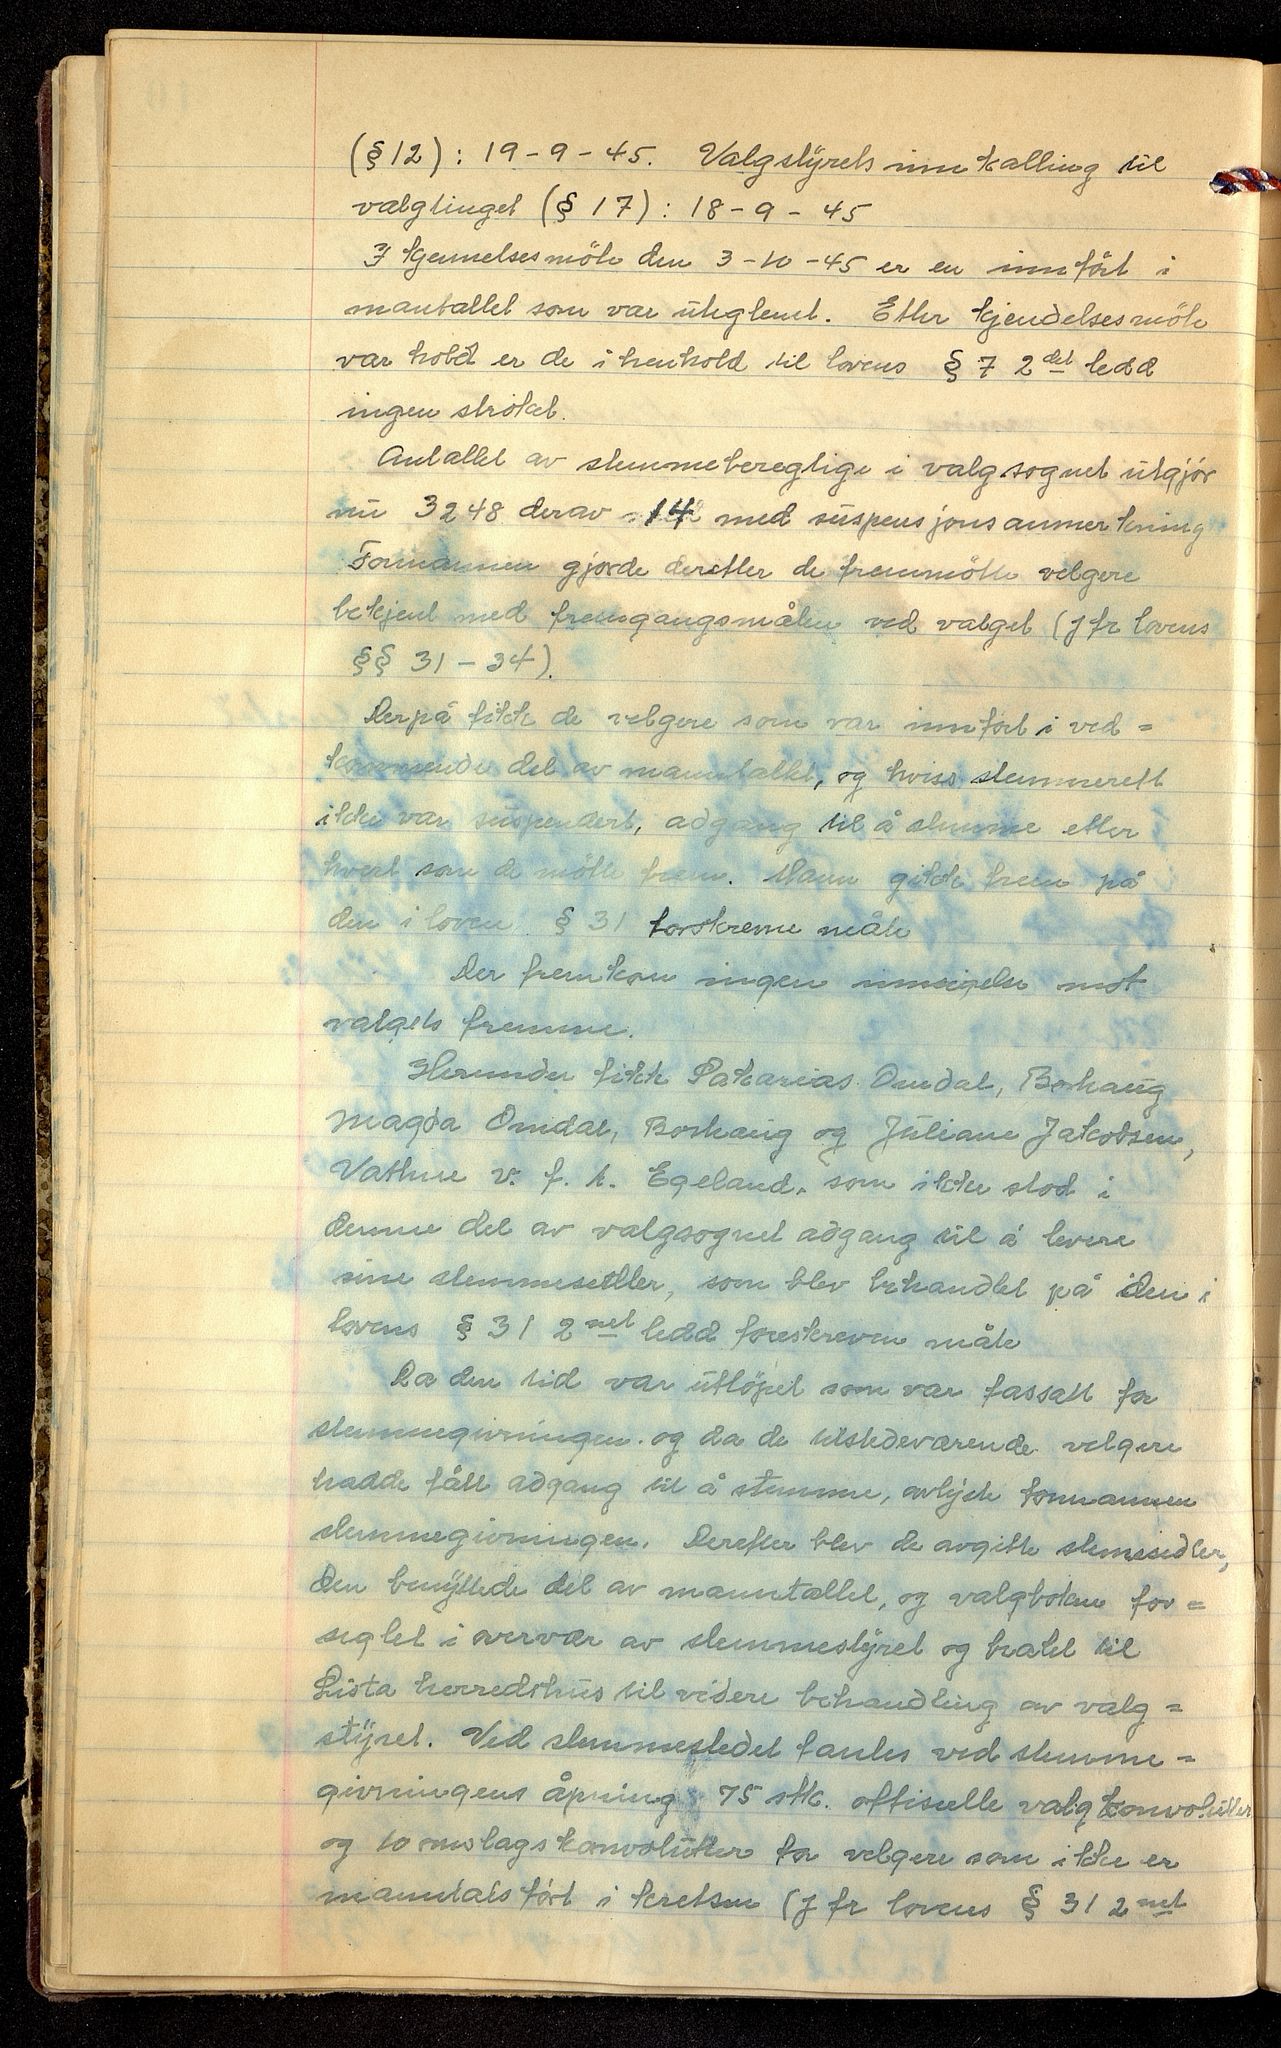 (§ 12) : 19 - 9 - 45. Valgstyrets innkalling til
valgtinget (§ 17) : 18 - 9 - 45
I kjennelsesmöte den 3 - 10 - 45 er en innfört i
mantallet som var uteglemt. Etter kjendelsesmöte
var hold er de i henhold til lovens § 7 2det ledd
ingen ströket.
Antallet av stemmeberegtige i valgsognet utgjör
nu 3248 derav 14 med suspensjonsanmerkning
Formannen gjorde deretter de fremmötte velgere
bekjent med fremgangsmåten ved valget (jfr lovens
§§ 31 - 34).
Derpå fikk de velgere som var innfört i ved=
kommende del av manntallet, og hviss stemmerett
ikke var suspendert, adgang til å stemme etter
hvert som de mötte frem. Mann gikk frem på
den i loven § 31 forskrevne måte
Der fremkom ingen innsigelse mot
valgets fremme.
Herunder fikk Sakarias Omdal, Borhaug
Magda Omdal, Borhaug og Juliane Jakobsen,
Vathne v. f. h. Egeland. som ikke stod i
denne del av valgsognet adgang til å levere
sine stemmesetller, som blev behandlet på den i
lovens § 31 2net ledd foreskreven måte
Da den tid var utlöpet som var fassatt for
stemmegivningen. og da de tilstedeværende velgere
hadde fått adgang til å stemme, avlyste formannen
stemmegivningen. Derefter blev de avgitte stemsedler,
den benyttede del av manntallet, og valgboken for=
seglet i overvær av stemmestyret og brakt til
Lista herredshus til videre behandling av valg=
styret. Ved stemmestedet fantes ved stemme=
givningens åpning 75 stk. offisielle valgkonvolutter
og 10 omslagskonvolutter for velgere som ikke er
manntalsfört i kretsen (jfr lovens § 31 2net